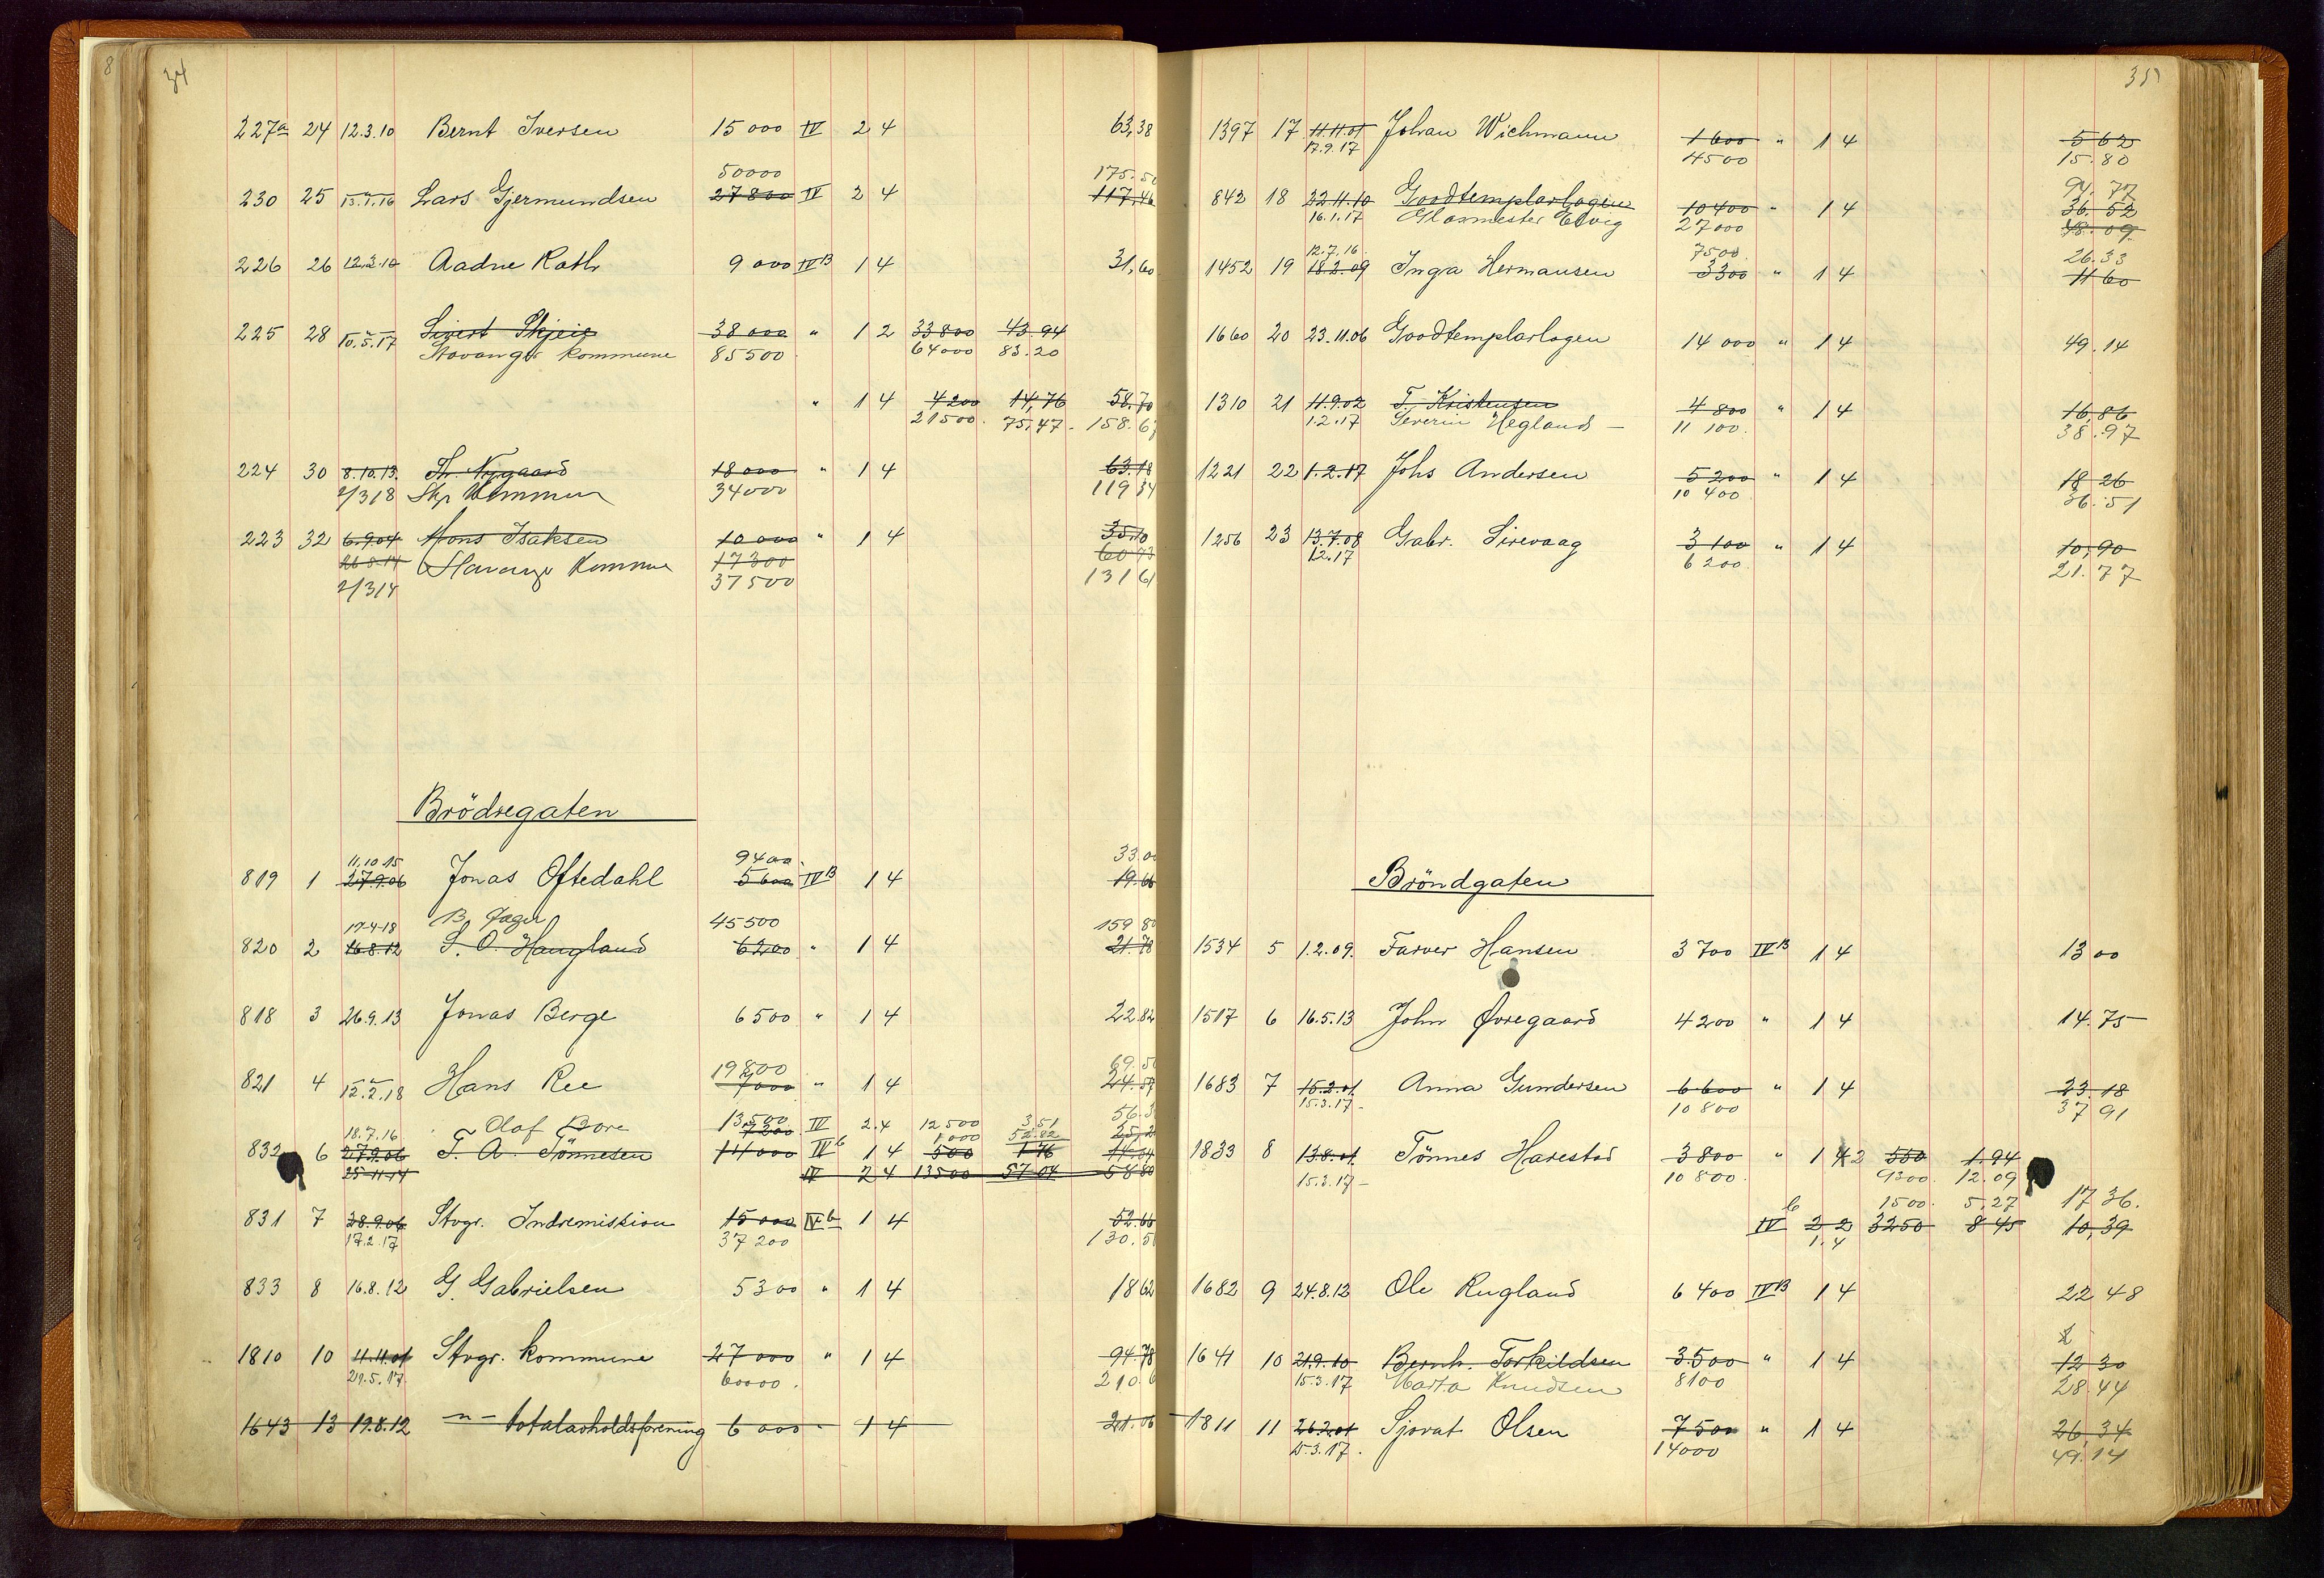 8 34
227a 24 12.3.10 Bernt Iversen 15 000 IV 2 4 63,38
50000 175.50
230 25 13.1.16 Lars Gjermundsen 27800 IV 2 4 117,46
226 26 12.3.10 Aadne Rath 9 000 IVB 1 4 31,60
225 28 10.5.17 Sivert Skjeie 38 000 " 1 2 33800 43.94
Stavanger kommune 85500 64000 83.20
" 1 4 4200 14,76 58,70
21500. 75,47. 158.67
224 30 8.10.13. Th. Nygaard 18 000 " 1 4 63,18
2/3 18 34000 119 34
223 32 6.9.04 Mons Isaksen 10 000 " 1 4 35,10
26.8.14 Stavanger Kommune 17300
2/3 14 37500 131 61
Brödregaten
11.10.15 9400. 33.00
819 1 27.9.06 Jonas Oftedahl 5 600 IVB 1 4 19.66
17-4-18 B. Jæger 45500 159 80
820 2 16.8.12 S. O. Haugland 6200 " 1 4 21.78
818 3 26.9.13 Jonas Berge 6500 " 1 4 22.82
19800 69.50
821 4 12.2.18 Hans Ree 7000 " 1 4 24.58
Olof Bore 13.500 IV 2.4 12 500 3,51
18.7.16 7200 1000 52.82
832 6 27.9.06 T. A. Tönnesen 14000 IVb 1 4 500 1 76
25-11-14 IV 2 4 13500 57 04 58 80
831 7 28.9.06 Stvgr. Indremission 15 000 IVb 1 4 52.66
17.2.17 37 200 130.5
833 8 16.8.12 G. Gabrielsen 5300 " 1 4 18 62
1810 10 11.11.01 Stvgr. kommune 27 000 " 1 4 94.78
29.5.17. 60000. 210.6
1643 13 19.8.12 —"— totalavholdsforening 6 000 " 1 4 21.06
35
1397 17 11.11.01 Johan Wichmann 1600 " 1 4 5 62
17.9.17 4500 15.80
94.77
842 18 22.11.10 Goodtemplarlogen 10400 " 1 4 36.52
16.1.17 Glasmester Elvig 27000 48.09
12.7.16 7500 26.33
1452 19 18.2.09 Inga Hermansen 3300 " 1 4 11 60
1660 20 23.11.06 Goodtemplarlogen 14 000 " 1 4 49.14
1310 21 11.9.02 T. Kristensen 4 800 " 1 4 16,86
1.2.17 Severin Hegland — 11 100. 38.97
1221 22 1.2.17 Johs Andersen 5200 " 1 4 18 26
10 400 36.51
1256 23 13.7.08 Gabr. Sirevaag 3 100 " 1 4 10,90
1.2.17 6 200 21.77
Bröndgaten
1534 5 1.2.09. Farver Hansen 3 700 IVB 1 4 13 00
1517 6 16.5.13 John Øvregaard 4200 " 1 4 14.75
1683 7 15.2.01. Anna Gundersen 6600 " 1 4 23.18
15.3.17 — 10 800 37 91
1833 8 13.8.01. Tönnes Harestad 3 800 " 1 4 2 550 1.94
15.3.17 — 10 800. 9300. 12.09
b 1500. 5,27 17 36.
IV 2 2 3250 8 45 10,39
1.4
1682 9 24.8.12 Ole Rugland 6 400 IVB 1 4 22 48
1641 10 21.9.10 Bernh. Torkildsen 3.500 " 1 4 12 30
15.3.17 Marta Knudsen 8100 28.44
1811 11 26.2.01 Sjovat Olsen 7 500 " 1 4 26,34
15.3.17. 14000 49.14